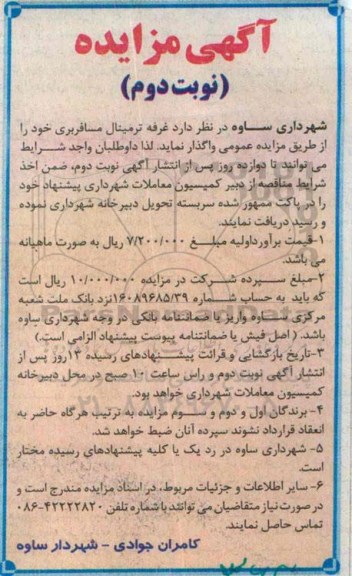 آگهی مزایده
(نوبت دوم)
شهرداری ساوه در نظر دارد غرفه ترمینال مسافربری خود را
از طریق مزایده عمومی واگذار نماید. لذا داوطلبان واجد شرایط
می توانند تا دوازده روز پس از انتشار آگهی نوبت دوم، ضمن اخذ
شرایط مناقصه از دبیر کمیسیون معاملات شهرداری پیشنهاد خود
را در پاکت ممهور شده سربسته تحویل دبیرخانه شهرداری نموده
و رسید دریافت نمایند.
۱-قیمت برآورداولیه مبلغ ۷/۲۰۰/۰۰۰ ریال به صورت ماهیانه
می باشد.
۲-مبلغ سپرده شرکت در مزایده ۱۰/۰۰۰/۰۰۰ ریال است
که باید به حساب شماره ۱۶۰۸۹۶۸۵/۳۹نزد بانک ملت شعبه
مرکزی ساوه واریز یا ضمانتنامه بانکی در وجه شهرداری ساوه
باشد. ( اصل فیش یا ضمانتنامه پیوست پیشنهاد الزامی است.)
۳-تاریخ بازگشایی و قرائت پیشنهادهای رسیده ۱۳روز پس از
انتشار آگهی نوبت دوم و راس ساعت ۱۰ صبح در محل دبیرخانه
کمیسیون معاملات شهرداری خواهد بود.
۴- برندگان اول و دوم و سوم مزایده به ترتیب هرگاه حاضر به
انعقاد قرارداد نشوند سپرده آنان ضبط خواهد شد.
۵- شهرداری ساوه در رد یک یا کلیه پیشنهادهای رسیده مختار
است.
۶- سایر اطلاعات و جزئیات مربوط، در اسناد مزایده مندرج است و
در صورت نیاز متقاضیان می توانند با شماره تلفن ۴۲۲۲۲۸۲۰-۰۸۶
تماس حاصل نمایند.
کامران جوادی - شهردار ساوه